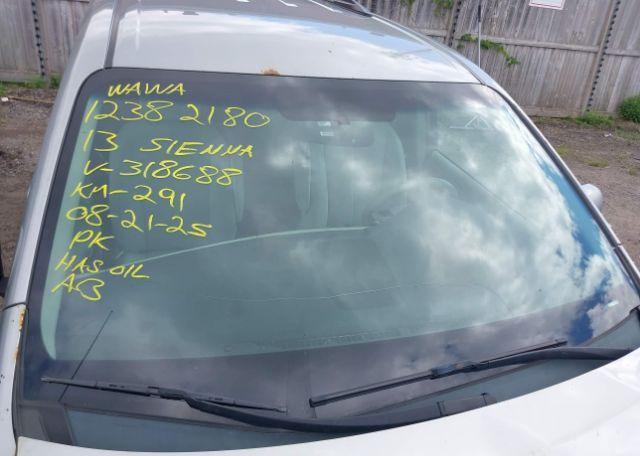 WAWA
1238 2180
13 SIENNA
V-318688
KM-291
08-21-25
PK
HAS OIL
AB